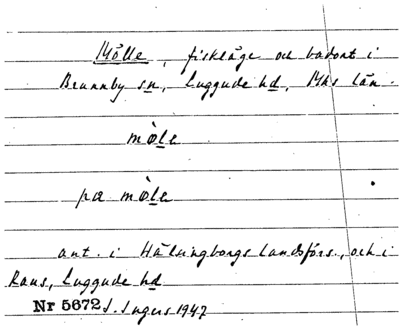 Mölle, fiskläge och badort i
Brunnby sn, Luggude hd, Mhs län.
mòle
pa mòle
ant. i Hälsingborgs landsförs., och i
Raus, Luggude hd
Nr 5672 S. Ingers 1947